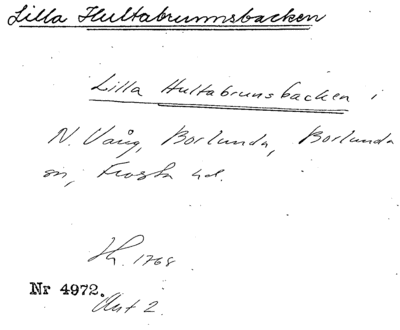 Lilla Hultabrunnsbacken
Lilla Hultabrunsbacken i
N. Vång, Borlunda, Borlunda
sn, Frosta hd.
Lh. 1768
Nr 4972.
Akt 2.